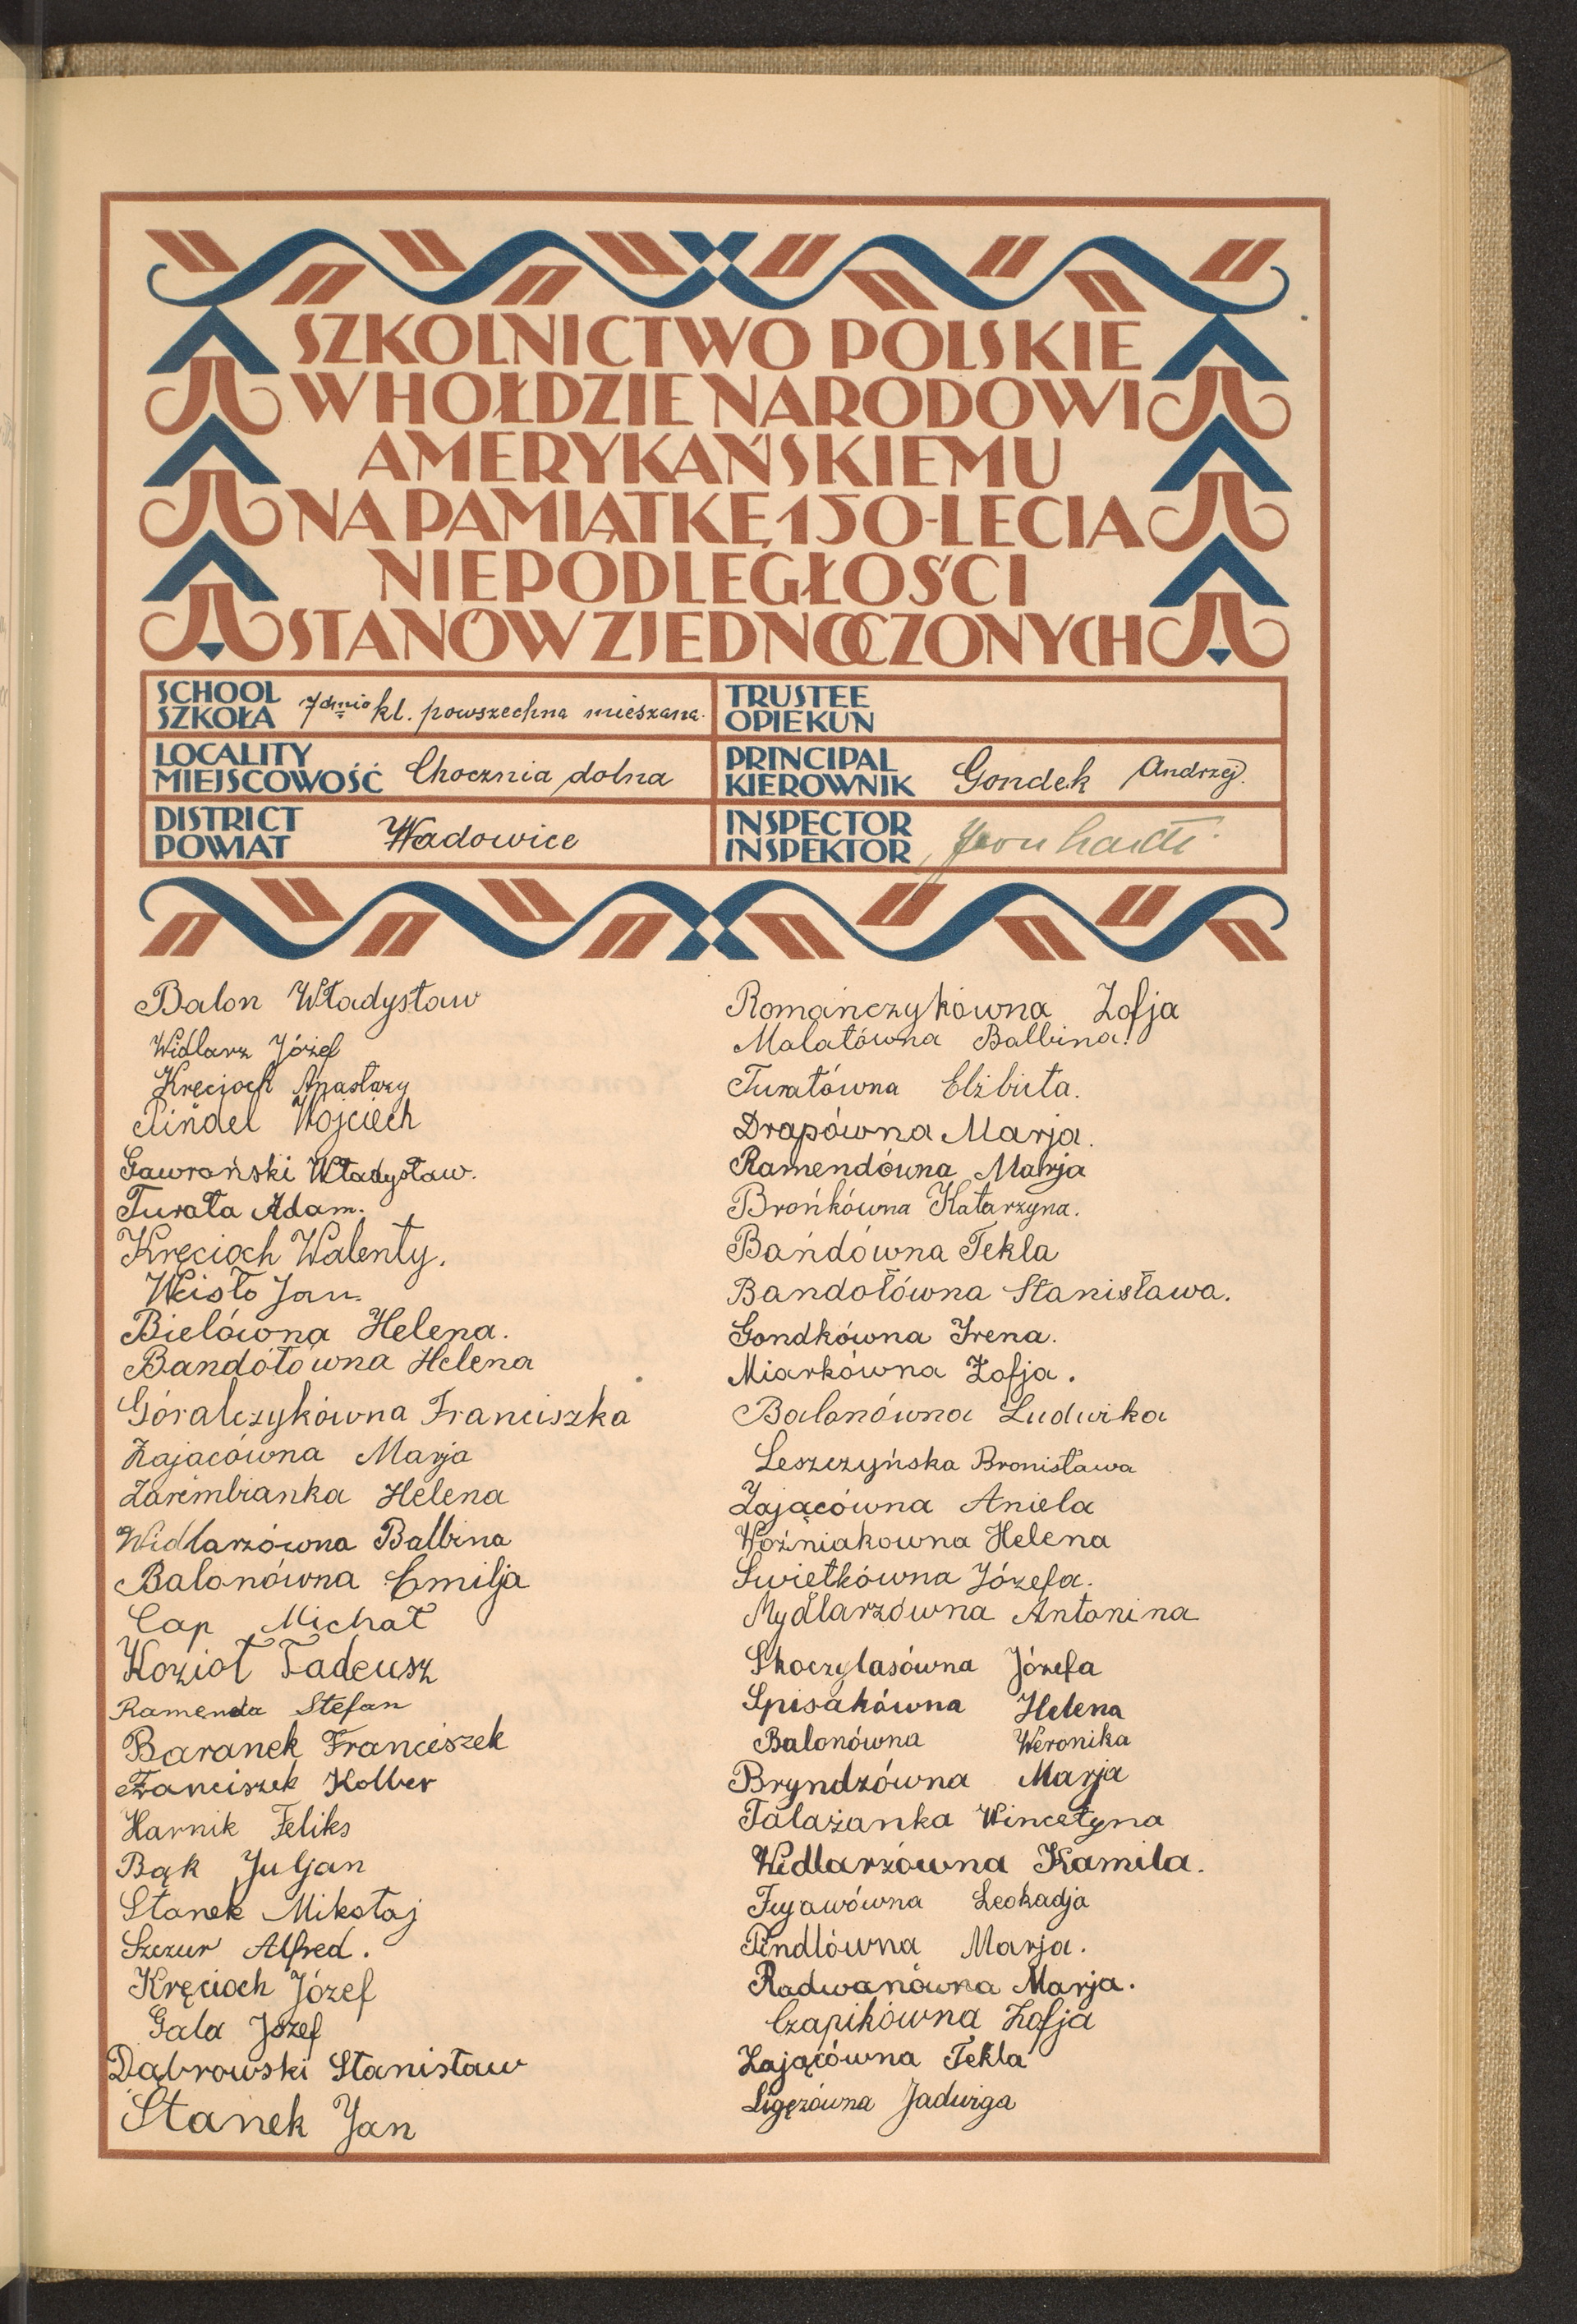 SZKOLNICTWO POLSKIE
W HOŁDZIE NARODOWI
AMERYKAŃSKIEMU
NA PAMIĄTKĘ 150-LECIA
NIEPODLEGŁOŚCI
STANÓW ZJEDNOCZONYCH
SCHOOL
SZKOŁA 7dmio kl. powszechna mieszana.
TRUSTEE
OPIEKUN
LOCALITY
MIEJSCOWOŚĆ Chocznia dolna
PRINCIPAL
KIEROWNIK Gondek Andrzej.
DISTRICT
POWIAT Wadowice
INSPECTOR
INSPEKTOR
Balon Władysław
Widlarz Józef
Kręcioch Anastazy
Pindel Wojciech
Gawroński Władysław.
Turała Adam.
Kręcioch Walenty.
Wcisło Jan.
Bielówna Helena.
Bandołówna Helena
Góralczykówna Franciszka
Zajacówna Marja
Zarembianka Helena
Widlarzówna Balbina
Balonówna Emilja
Cap Michał
Kozioł Tadeusz
Ramenda Stefan
Baranek Franciszek
Franciszek Kolber
Harnik Feliks
Bąk Juljan
Stanek Mikołaj
Szczur Alfred.
Kręcioch Józef
Gala Józef
Dąbrowski Stanisław
Stanek Jan
Romańczykówna Zofja
Malatówna Balbina.
Turałówna Elżbieta.
Drapówna Marja.
Ramendówna Marja
Brońkówna Katarzyna.
Bańdówna Tekla
Bandołówna Stanisława.
Gondkówna Irena.
Miarkówna Zofja.
Balonówna Ludwika
Leszczyńska Bronisława
Zającówna Aniela
Woźniakowna Helena
Świetkówna Józefa.
Mydlarzówna Antonina
Skoczylasówna Józefa
Spisakówna Helena
Balonówna Weronika
Bryndzówna Marja
Talażanka Wincetyna
Widlarzówna Kamila.
Fujawówna Leokadja
Pindlówna Marja.
Radwanówna Marja.
Czapikówna Zofja
Zającówna Tekla
Ligęzówna Jadwiga